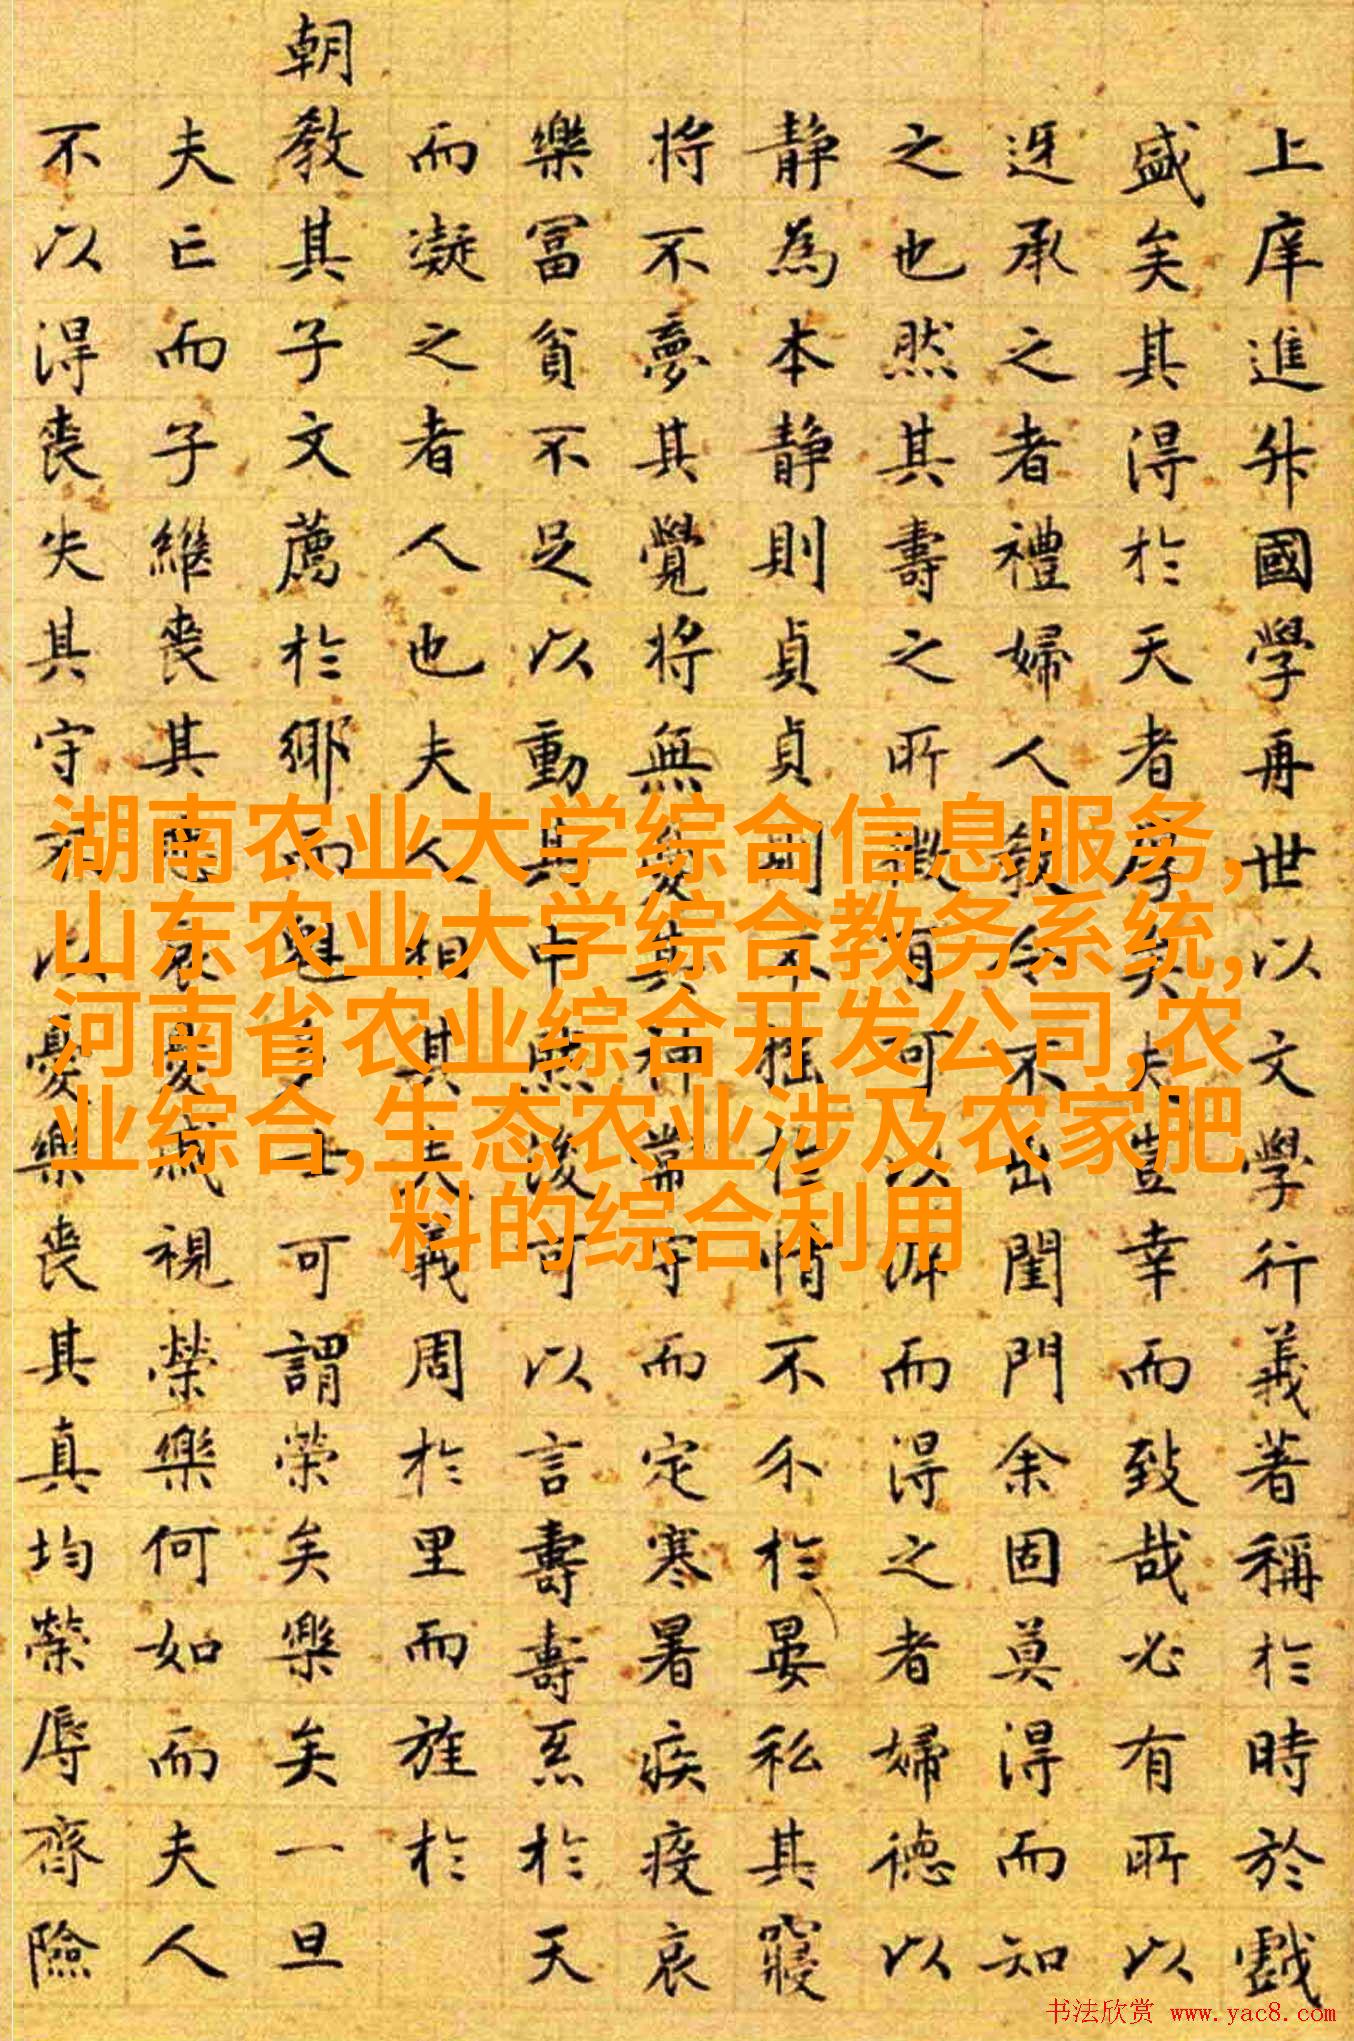 上庠進升國學再世以文學行義著稱於時於戲
盛矣其得於天者厚矣夫豈幸而致哉必有所以
迓承之者禮婦人教令不出閨門余固莫得而知
之也然其壽之所徵有可以源而得之者婦德以
静為本静則貞貞則不於情不於晏私其寢
将不夢其覺将無憂其神常守而定寒暑疾疫哀
樂冨貧不足以動其中然後可以言壽壽系於天
而凝之者人也夫人相其夫義周於里而旌於
朝教其子文薦於鄉而魁多士可謂榮矣樂矣一旦
夫亡而子繼喪其哀憂戚視榮樂何如而夫人
不以得喪失其守不以憂樂喪其真均榮辱齊險
湖南农业大学综合信息服务,
山东农业大学综合教务系统,
河南省农业综合开发公司,农
业综合,生态农业涉及农家肥
料的综合利用
书法欣赏 www.yac8.com